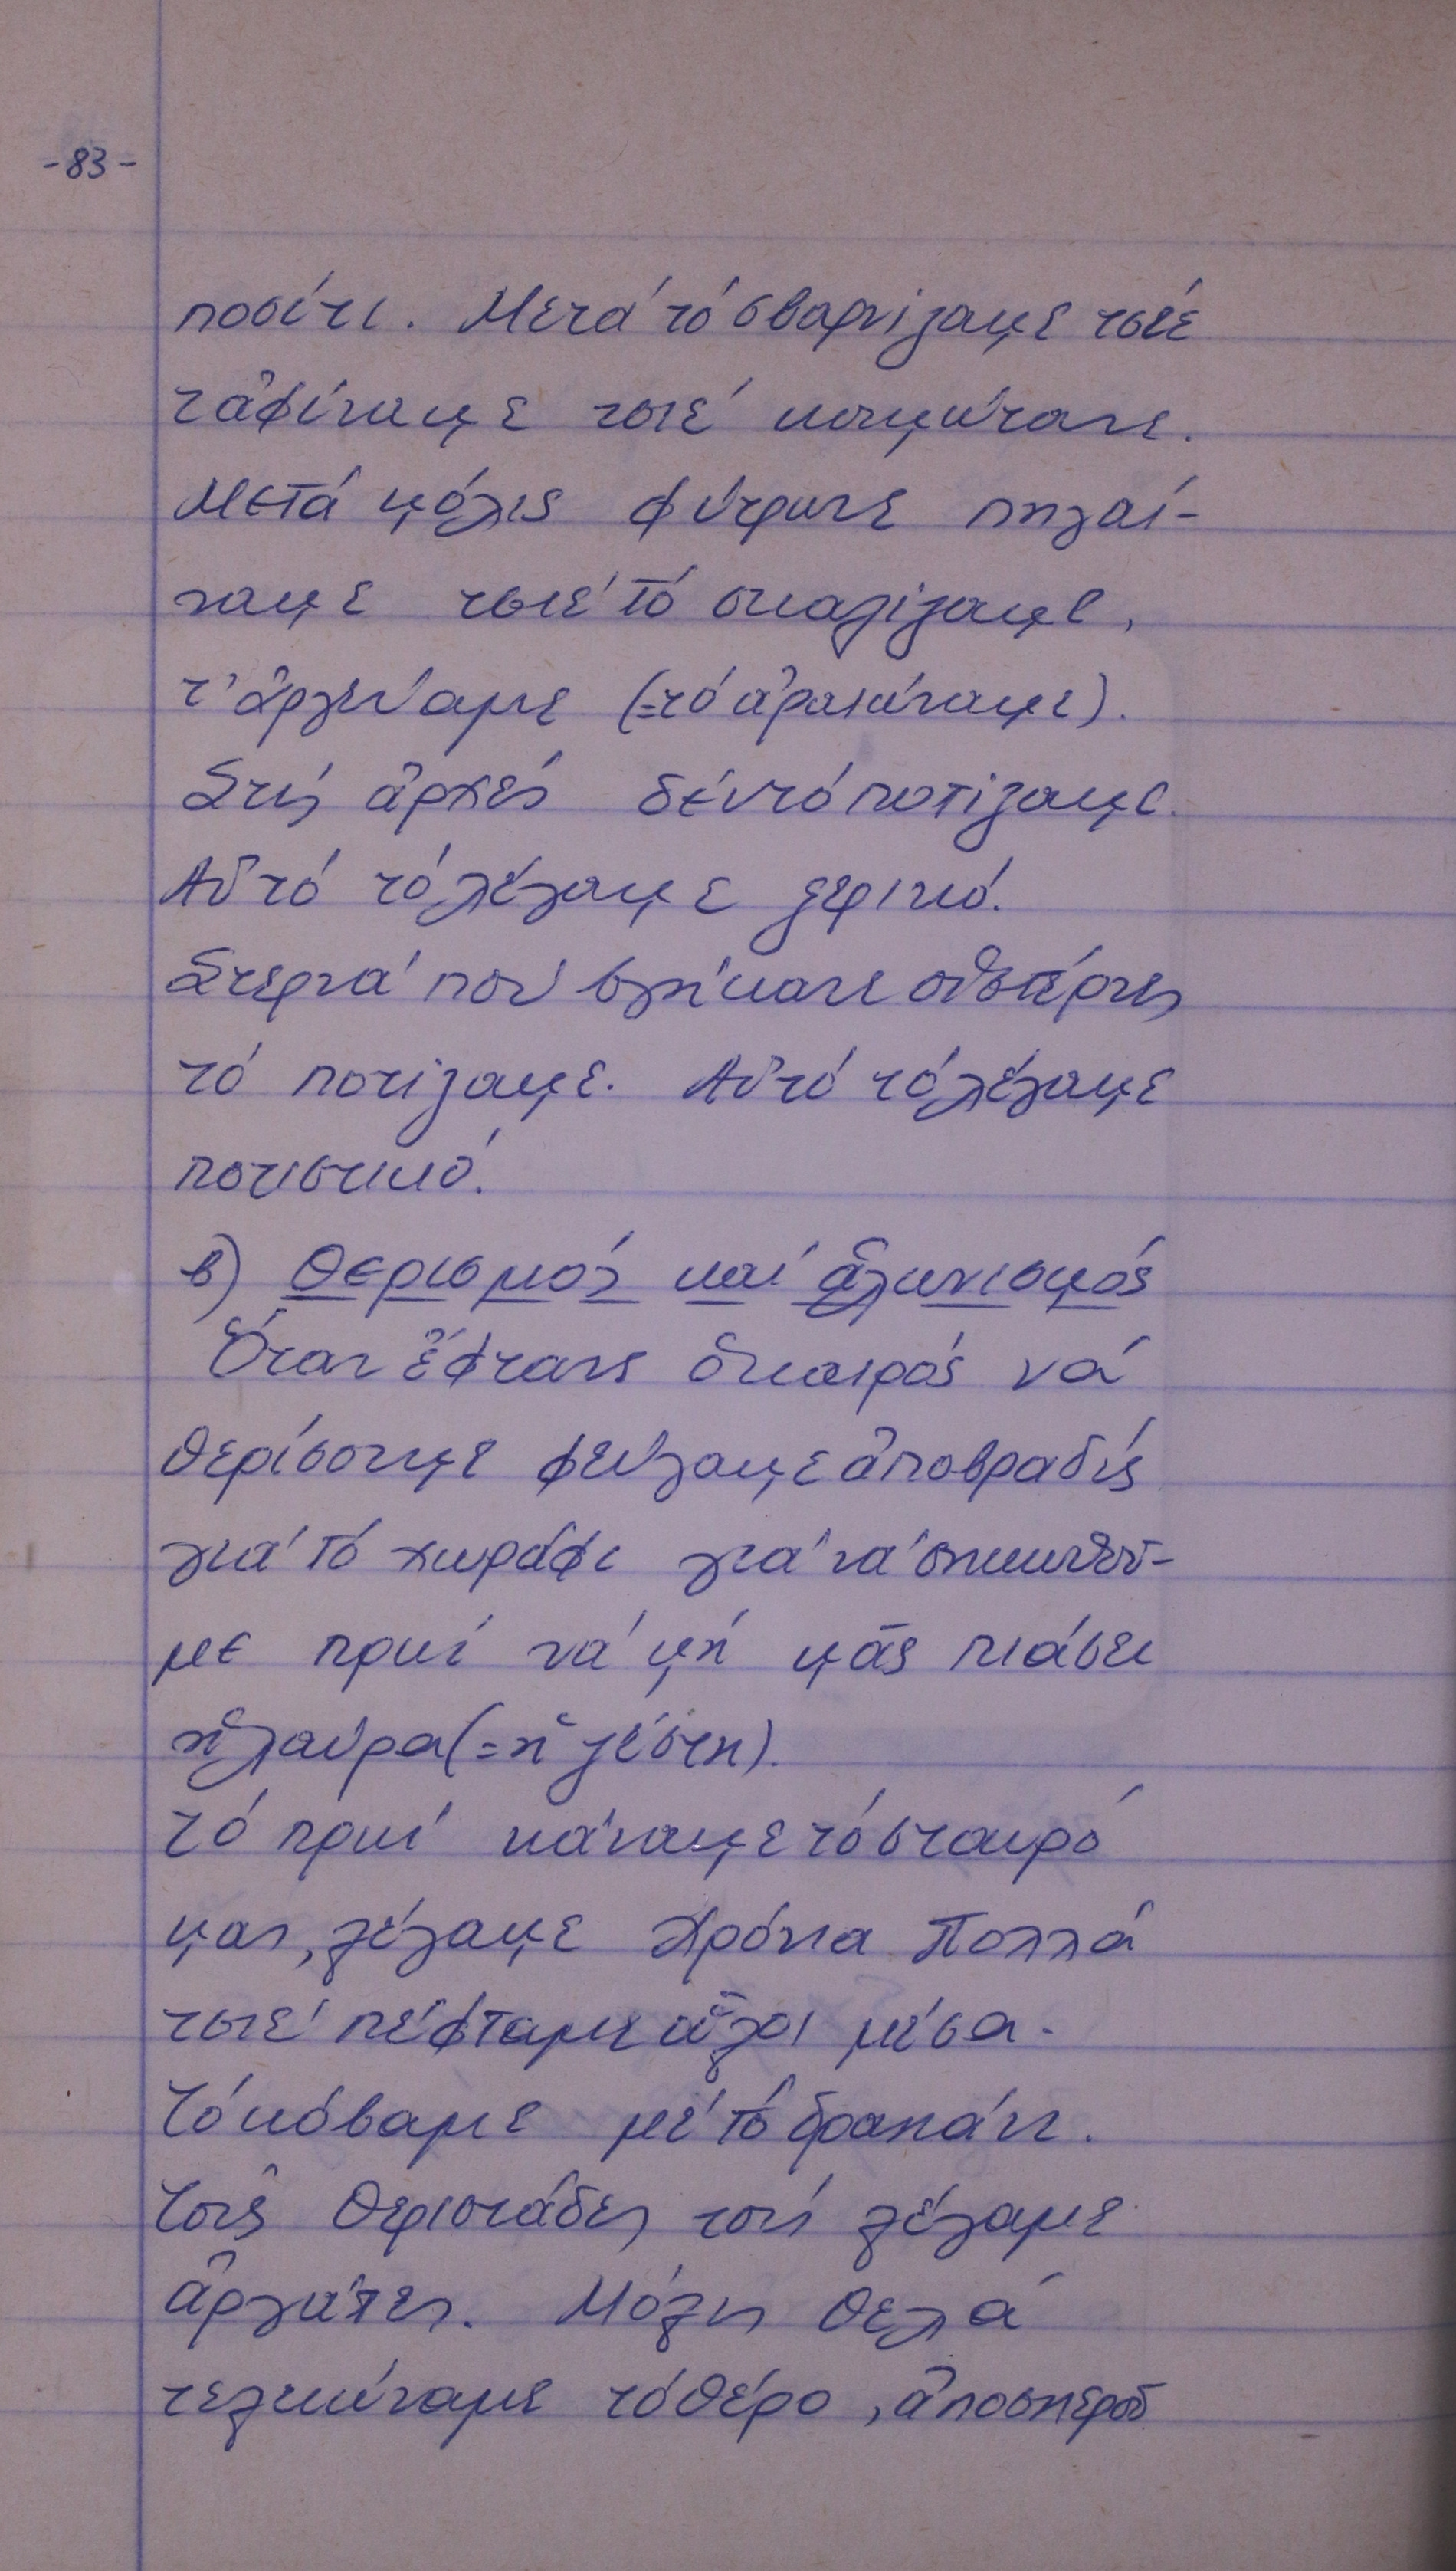 -83-
ποσίτι. Μετά τό σβαρνίζαμε τσιέ
τἀφίναμε τσιέ κοιμώτανε.
Μετά μόλις φύτρωνε πηγαί-
ναμε τσιέ τό σκαλίζαμε,
τ' ἀργεύαμε (=τό ἀραιώναμε).
Στίς ἀρχές δέν τό ποτίζαμε.
Αὐτό τό λέγαμε ξερικό.
Στερνά πού βγήκανε οἱ στέρνες
τό ποτίζαμε. Αὐτό τό λέγαμε
ποτιστικό.
β) Θερισμός καί ἁλωνισμός
Ὅταν ἔφτανε ὁ καιρός νά
θερίσουμε φεύγαμε ἀποβραδίς
γιά τό χωράφι γιά νά σηκωθοῦ-
με πρωί νά μή μᾶς πιάσει
ἡ λαύρα (=ἡ ζέστη).
τό πρωί κάναμε τό σταυρό
μας, λέγαμε Χρόνια Πολλά
τσιέ πέφταμε οὗλοι μέσα.
Τό κόβαμε μέ τό δραπάνι.
Τοῦς θεριστάδες τούς λέγαμε
ἀργάτες. Μόλις θελά
τελειώναμε τό θέρο, ἀποσπεροῦ